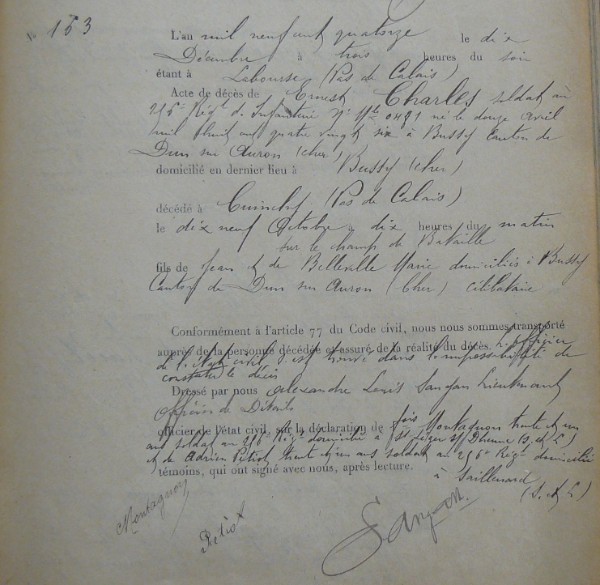 N° 153
L'an mil neuf cent quatorze le dix
Décembre à trois heures du soir
étant à Labourse (Pas de Calais)
Acte de décès de Ernest Charles soldat au
296e Régt de Infanterie né le douze avril
mil huit cent quatre vingt six à Bussy Canton de
Dun sur Auron (cher)
domicilié en dernier lieu à Bussy (cher)
décédé à Cuinchy (Pas de Calais)
le dix neuf Octobre à dix heures du matin
sur le champ de Bataille
fils de Jean & de Bellevalle Marie domiciliés à Bussy
Canton de Dun sur Auron (Cher) célibataire
Conformément à l'article 77 du Code civil, nous nous sommes transporté
auprès de la personne décédée et assuré de la réalité du décès. L'officier
de l'état civil est trouvé dans l'impossibilité de
constater le décès
Dressé par nous Alexandre Louis Lieutenant
officier de Détails
officier de l'état civil, sur la déclaration de Montagnon trente et un
ans soldat au 296e Régt domicilié à St Léger s/ Dheune (S. & L.)
et de Adrien Petiot trente et un ans soldat au 296e Régt domicilié
témoins, qui ont signé avec nous, après lecture.
à Saillenard
(S. & L.)
Montagnon
Petiot